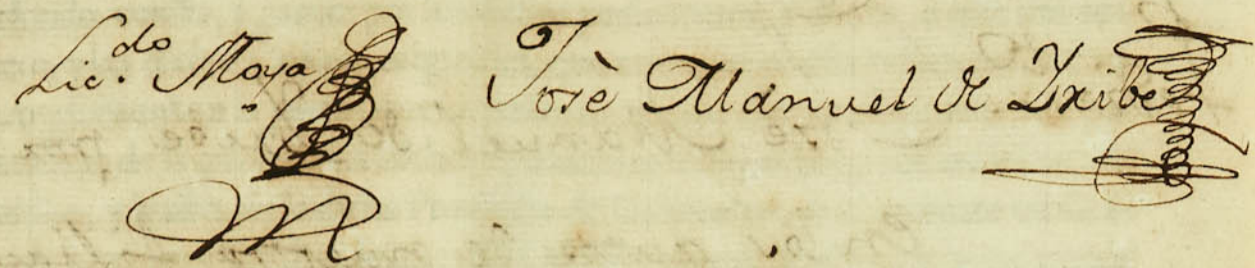 Lic.do Moya
José Manuel de Yribe